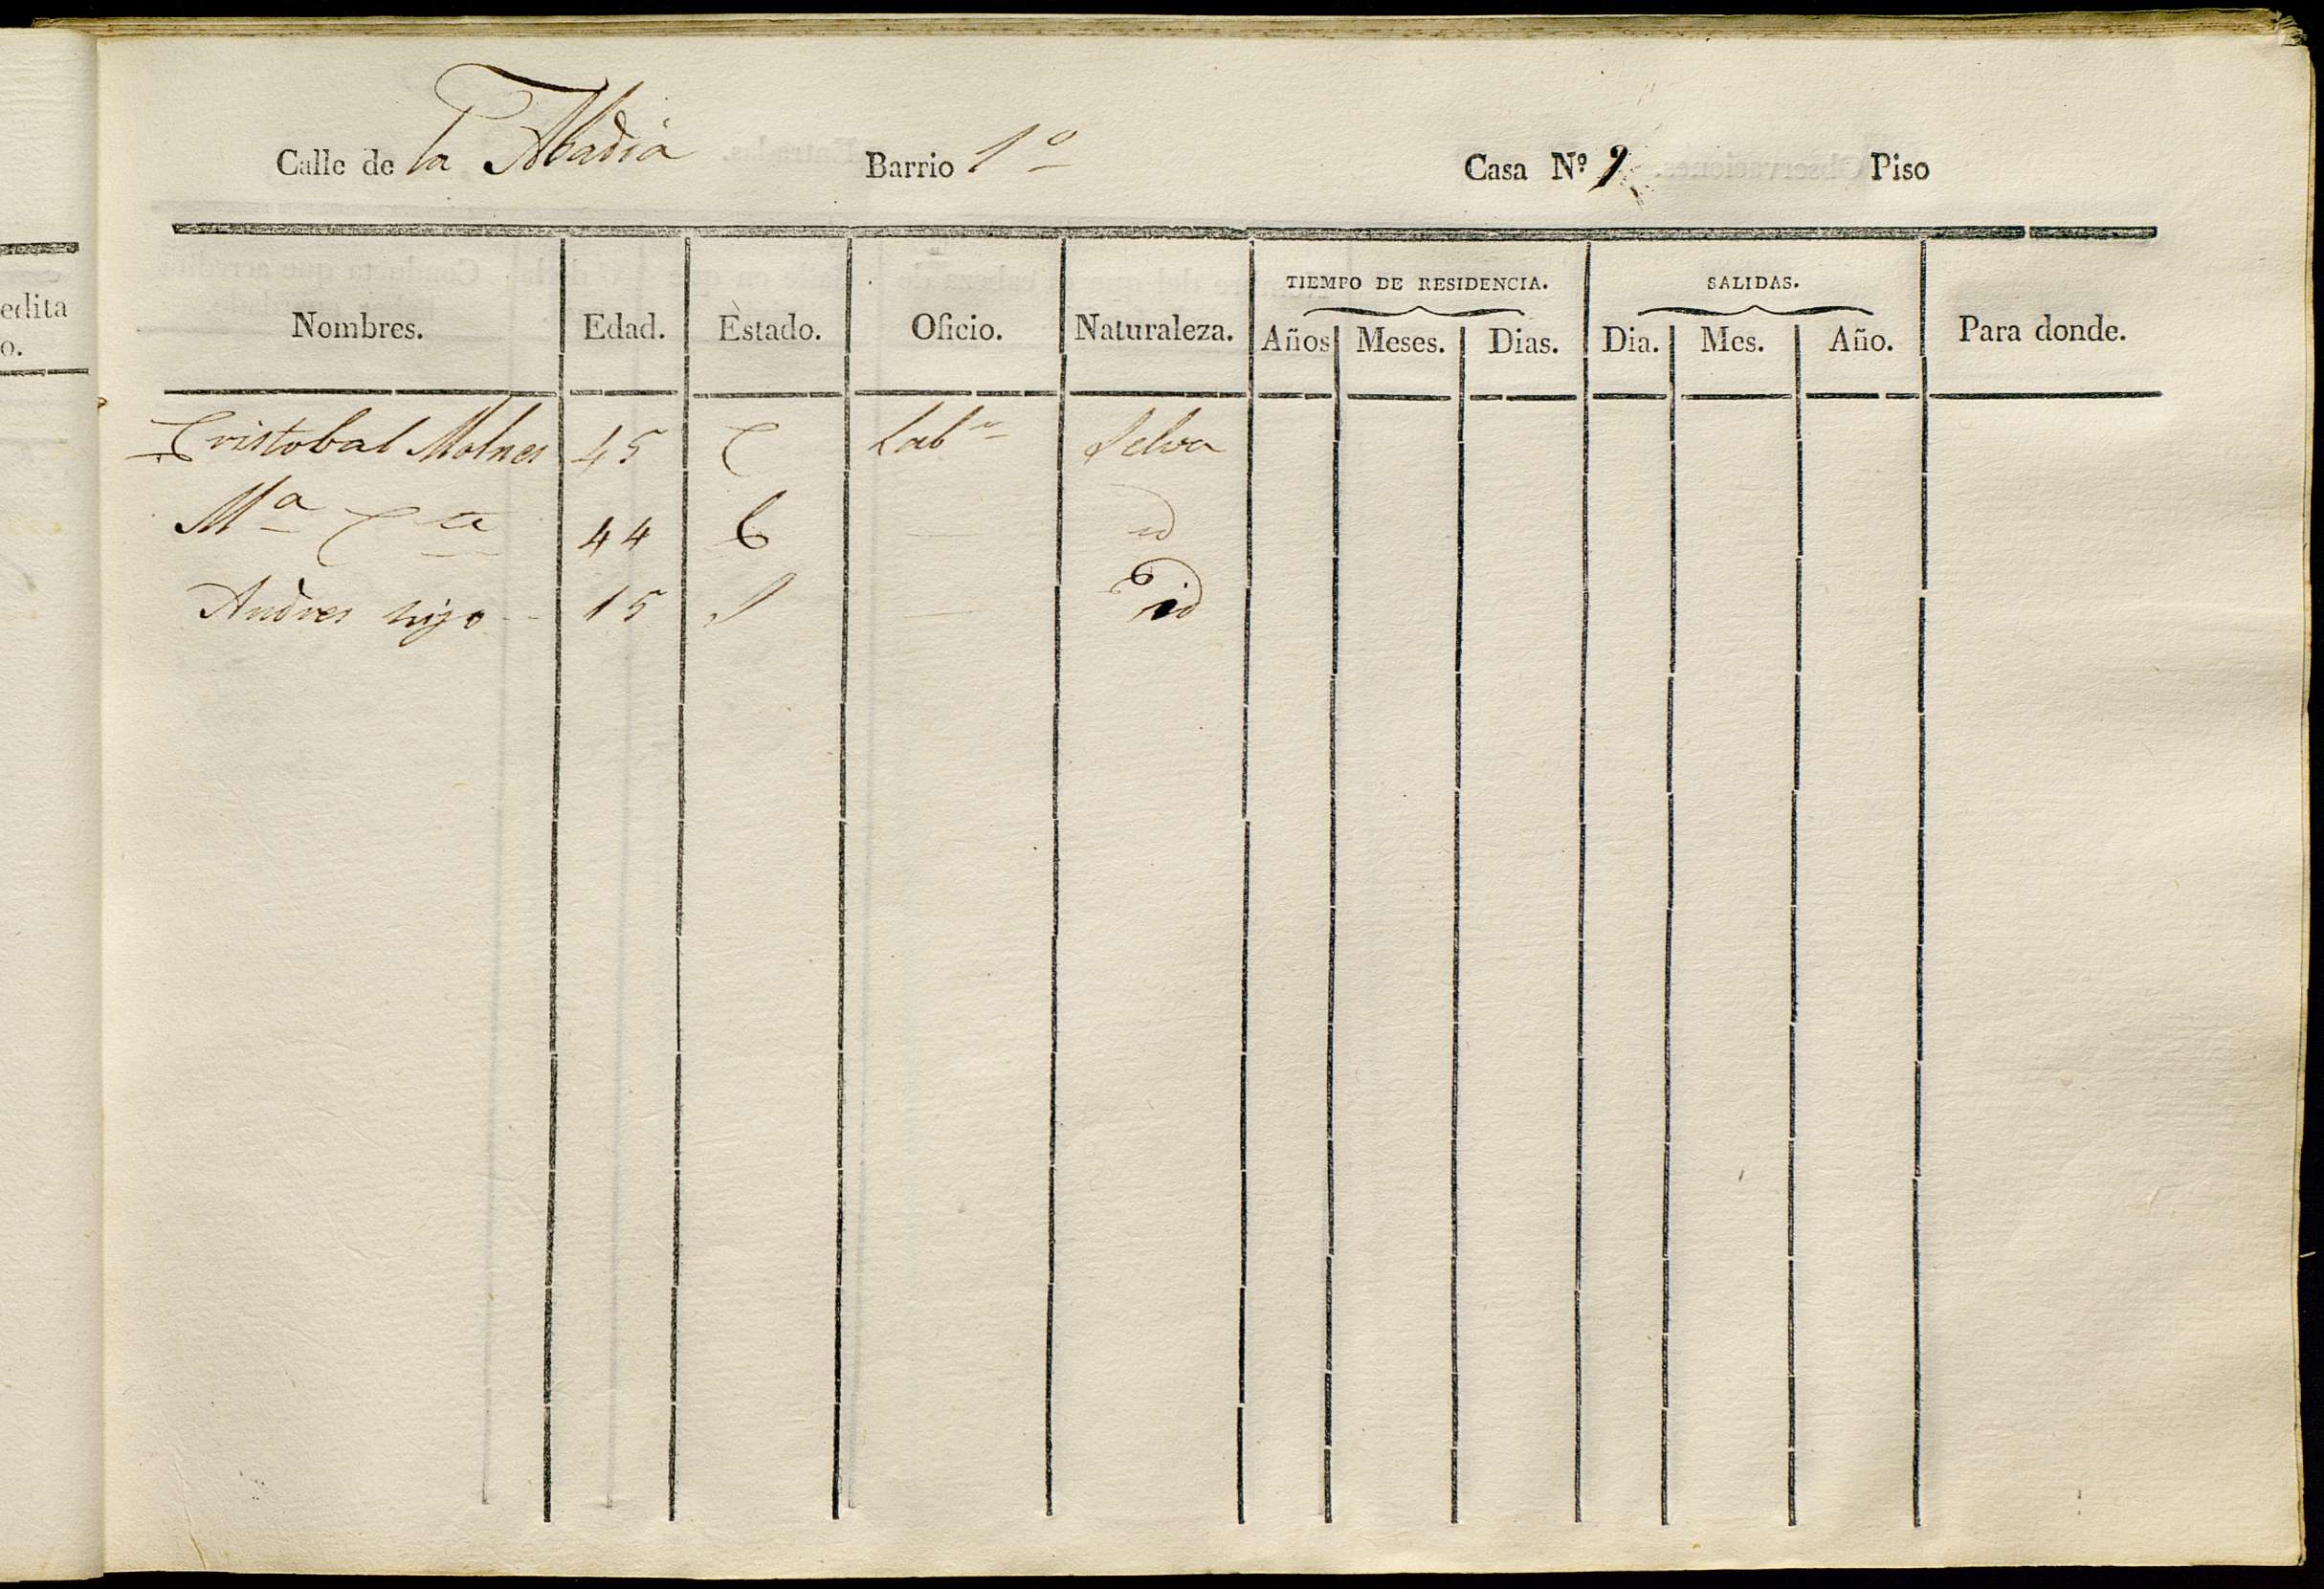 edita
o.
Calle de la Abadia Barrio 1º Casa Nº 9 Piso
TIEMPO DE RESIDENCIA. SALIDAS.
Nombres. Edad. Estado. Oficio. Naturaleza. Años Meses. Dias. Dia. Mes. Año. Para donde.
Cristobal Molner 45 C Labr Selva
Mª 44 C id
Andres hijo 15 S id